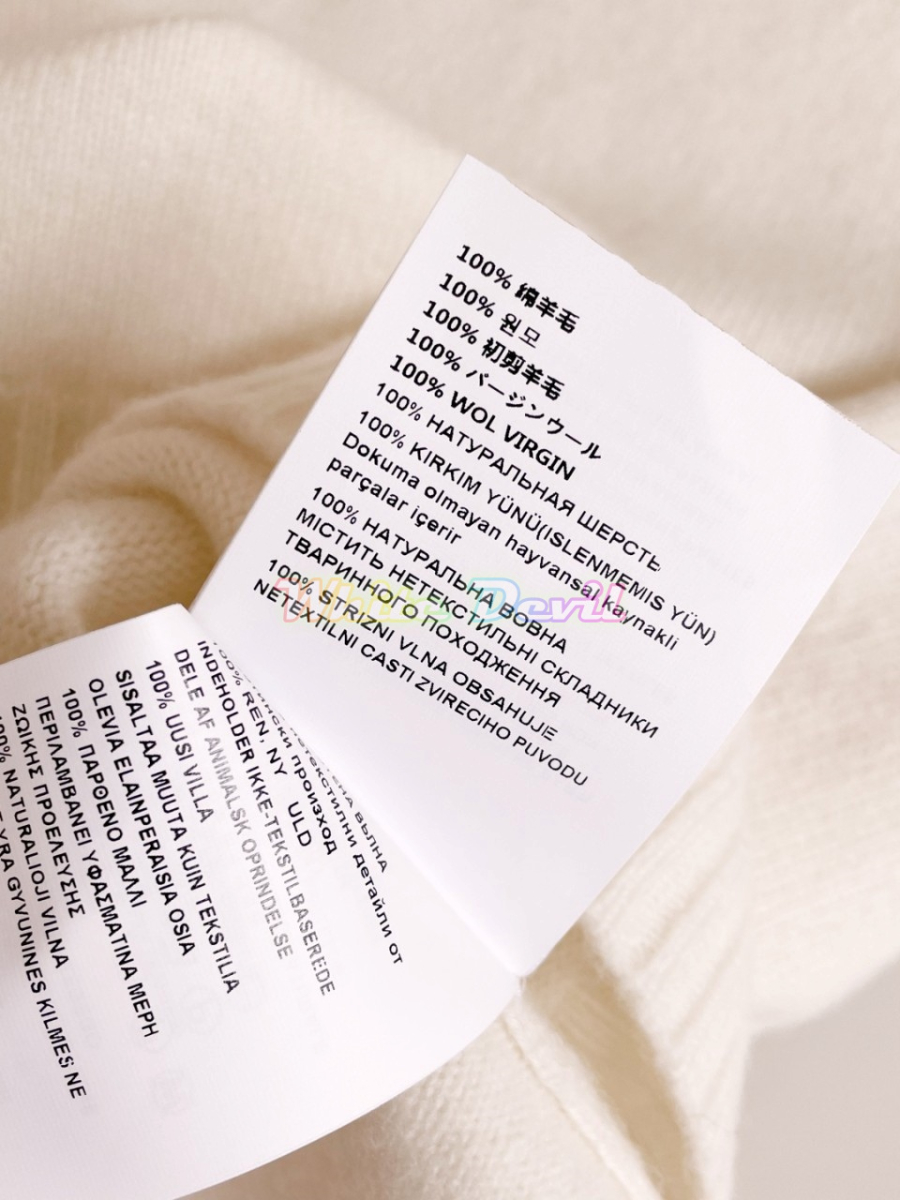 100% 綿羊毛
100% 원모
100% 初剪羊毛
100% バージンウール
100% WOL VIRGIN
100% НАТУРАЛЬНАЯ ШЕРСТЬ
100% KIRKIM YÜNÜ(ISLENMEMIS YÜN)
Dokuma olmayan hayvansal kaynakli
parçalar içerir
100% НАТУРАЛЬНА ВОВНА
МІСТИТЬ НЕТЕКСТИЛЬНІ СКЛАДНИКИ
ТВАРИННОГО ПОХОДЖЕННЯ
100% STRIZNI VLNA OBSAHUJE
NETEXTILNI CASTI ZVIRECIHO PUVODU
White Devil
ВЪЛНА
нетекстилни детайли от
произход
REN, NY ULD
INDEHOLDER IKKE-TEKSTILBASEREDE
DELE AF ANIMALSK OPRINDELSE
100% UUSI VILLA
SISALTAA MUUTA KUIN TEKSTILIA
OLEVIA ELAINPERAISIA OSIA
100% ΠΑΡΘΕΝΟ ΜΑΛΛΙ
ΠΕΡΙΛΑΜΒΑΝΕΙ ΥΦΑΣΜΑΤΙΝΑ ΜΕΡΗ
ΖΩΙΚΗΣ ΠΡΟΕΛΕΥΣΗΣ
100% NATURALIOJI VILNA
YRA GYVUNINES KILMES NE